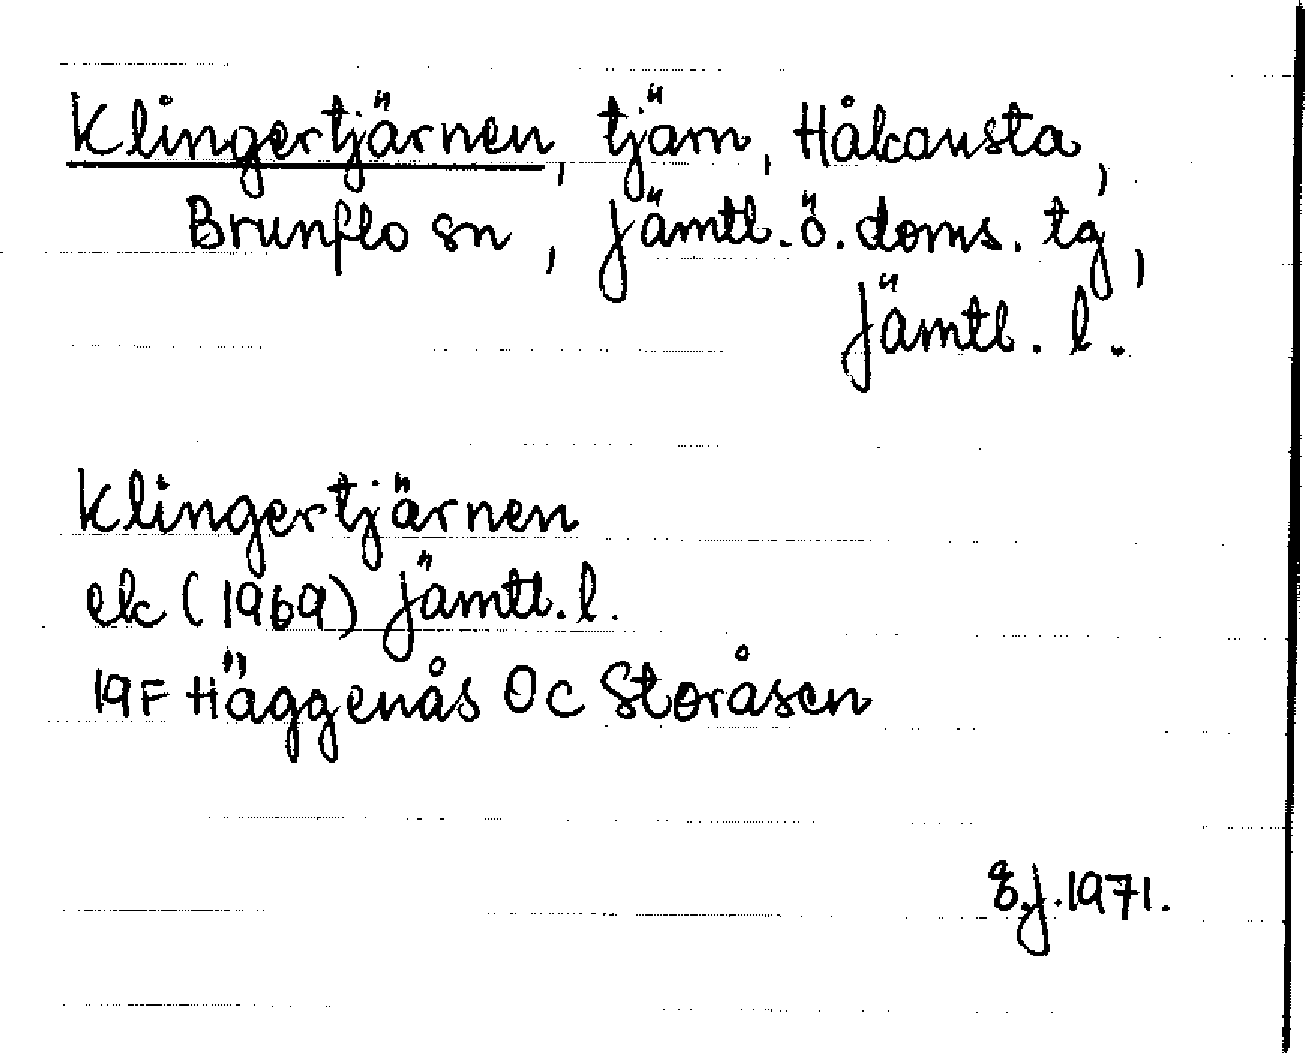 Klingertjärnen, tjärn, Håkansta,
Brunflo sn, Jämtl.ö.doms.tg,
Jämtl.l.
Klingertjärnen
ek (1969) Jämtl.l.
19F Häggenås 0c Storåsen
E.J.1971.